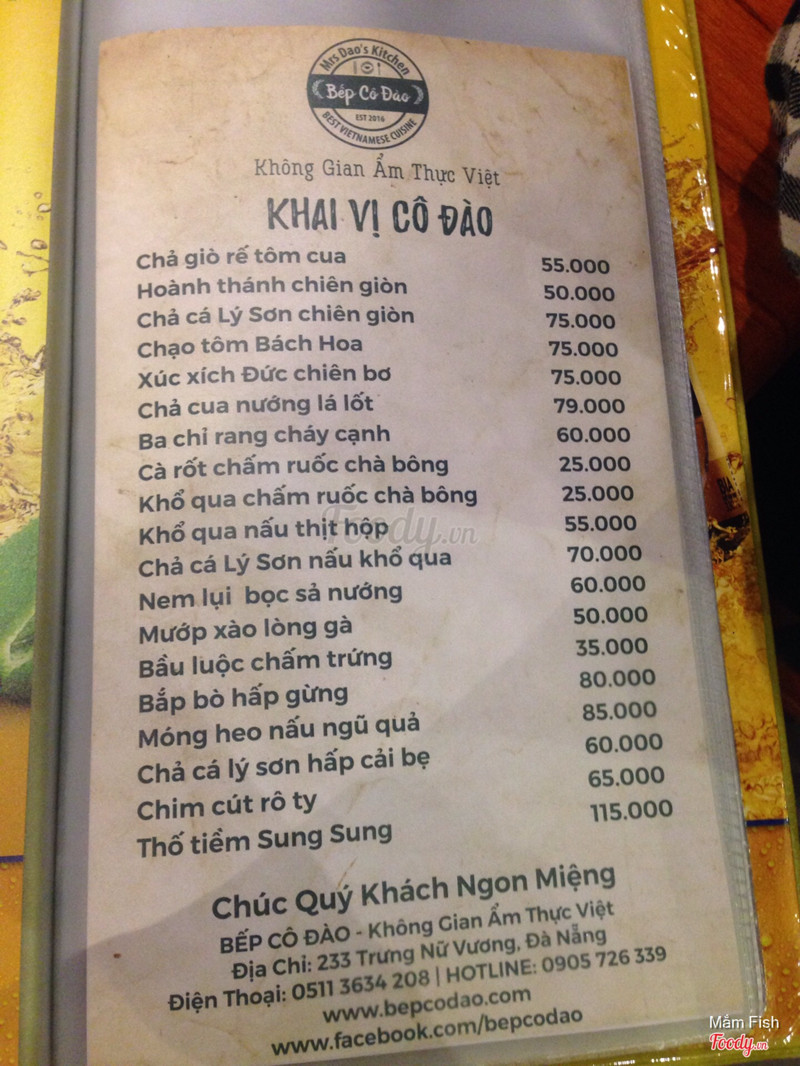 Mrs Dao's Kitchen
Bếp Cô Đào
EST 2016
BEST VIETNAMESE CUISINE
Không Gian Ẩm Thực Việt
KHAI VỊ CÔ ĐÀO
Chả giò rế tôm cua 55.000
Hoành thánh chiên giòn 50.000
Chả cá Lý Sơn chiên giòn 75.000
Chạo tôm Bách Hoa 75.000
Xúc xích Đức chiên bơ 75.000
Chả cua nướng lá lốt 79.000
Ba chỉ rang cháy cạnh 60.000
Cà rốt chấm ruốc chà bông 25.000
Khổ qua chấm ruốc chà bông 25.000
Khổ qua nấu thịt hộp 55.000
Chả cá Lý Sơn nấu khổ qua 70.000
Nem lụi bọc sả nướng 60.000
Mướp xào lòng gà 50.000
Bầu luộc chấm trứng 35.000
Bắp bò hấp gừng 80.000
Móng heo nấu ngũ quả 85.000
Chả cá lý sơn hấp cải bẹ 60.000
Chim cút rô ty 65.000
Thố tiềm Sung Sung 115.000
Foody.vn
Chúc Quý Khách Ngon Miệng
BẾP CÔ ĐÀO - Không Gian Ẩm Thực Việt
Địa Chỉ: 233 Trưng Nữ Vương, Đà Nẵng
Điện Thoại: 0511 3634 208 | HOTLINE: 0905 726 339
www.bepcodao.com
www.facebook.com/bepcodao
Mắm Fish
Foody.vn